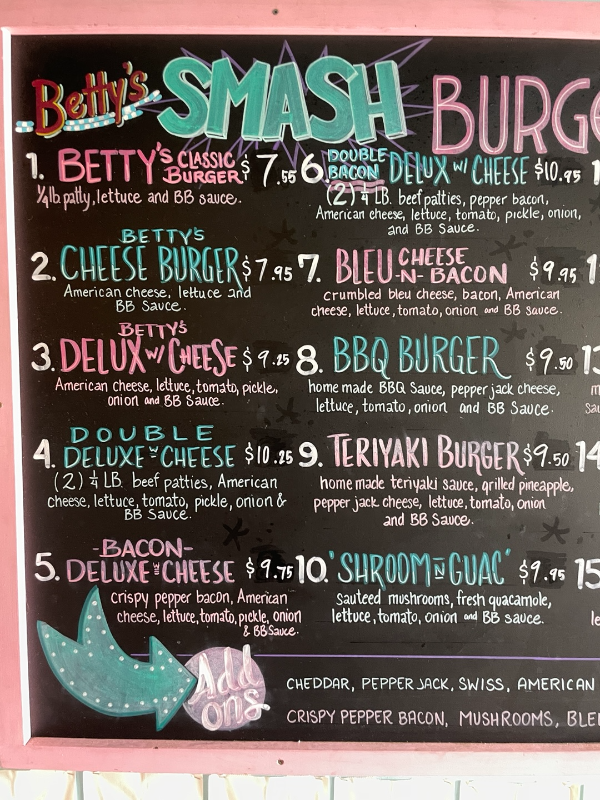 Betty's SMASH BURGE
1. BETTY'S CLASSIC BURGER $7.55
1/4lb patty, lettuce and BB sauce.
2. BETTY'S
CHEESE BURGER $7.95
American cheese, lettuce and
BB Sauce.
3. BETTY'S
DELUX w/ CHEESE $9.25
American cheese, lettuce, tomato, pickle,
onion and BB Sauce.
4. DOUBLE
DELUXE w/ CHEESE $10.25
(2) 1/4 LB. beef patties, American
cheese, lettuce, tomato, pickle, onion &
BB Sauce.
5. -BACON-
DELUXE w/ CHEESE $9.75
crispy pepper bacon, American
cheese, lettuce, tomato, pickle, onion
& BB Sauce.
6. DOUBLE BACON DELUX w/ CHEESE $10.95
(2) 1/4 LB. beef patties, pepper bacon,
American cheese, lettuce, tomato, pickle, onion,
and BB Sauce.
7. BLEU CHEESE -N- BACON $9.95
crumbled bleu cheese, bacon, American
cheese, lettuce, tomato, onion and BB sauce.
8. BBQ BURGER $9.50
home made BBQ Sauce, pepper jack cheese,
lettuce, tomato, onion and BB sauce.
9. TERIYAKI BURGER $9.50
home made teriyaki sauce, grilled pineapple,
pepper jack cheese, lettuce, tomato, onion
and BB Sauce.
10. 'SHROOM N GUAC' $9.95
sauteed mushrooms, fresh guacamole,
lettuce, tomato, onion and BB sauce.
13
14
15
Add
ons
CHEDDAR, PEPPER JACK, SWISS, AMERICAN
CRISPY PEPPER BACON, MUSHROOMS, BLE